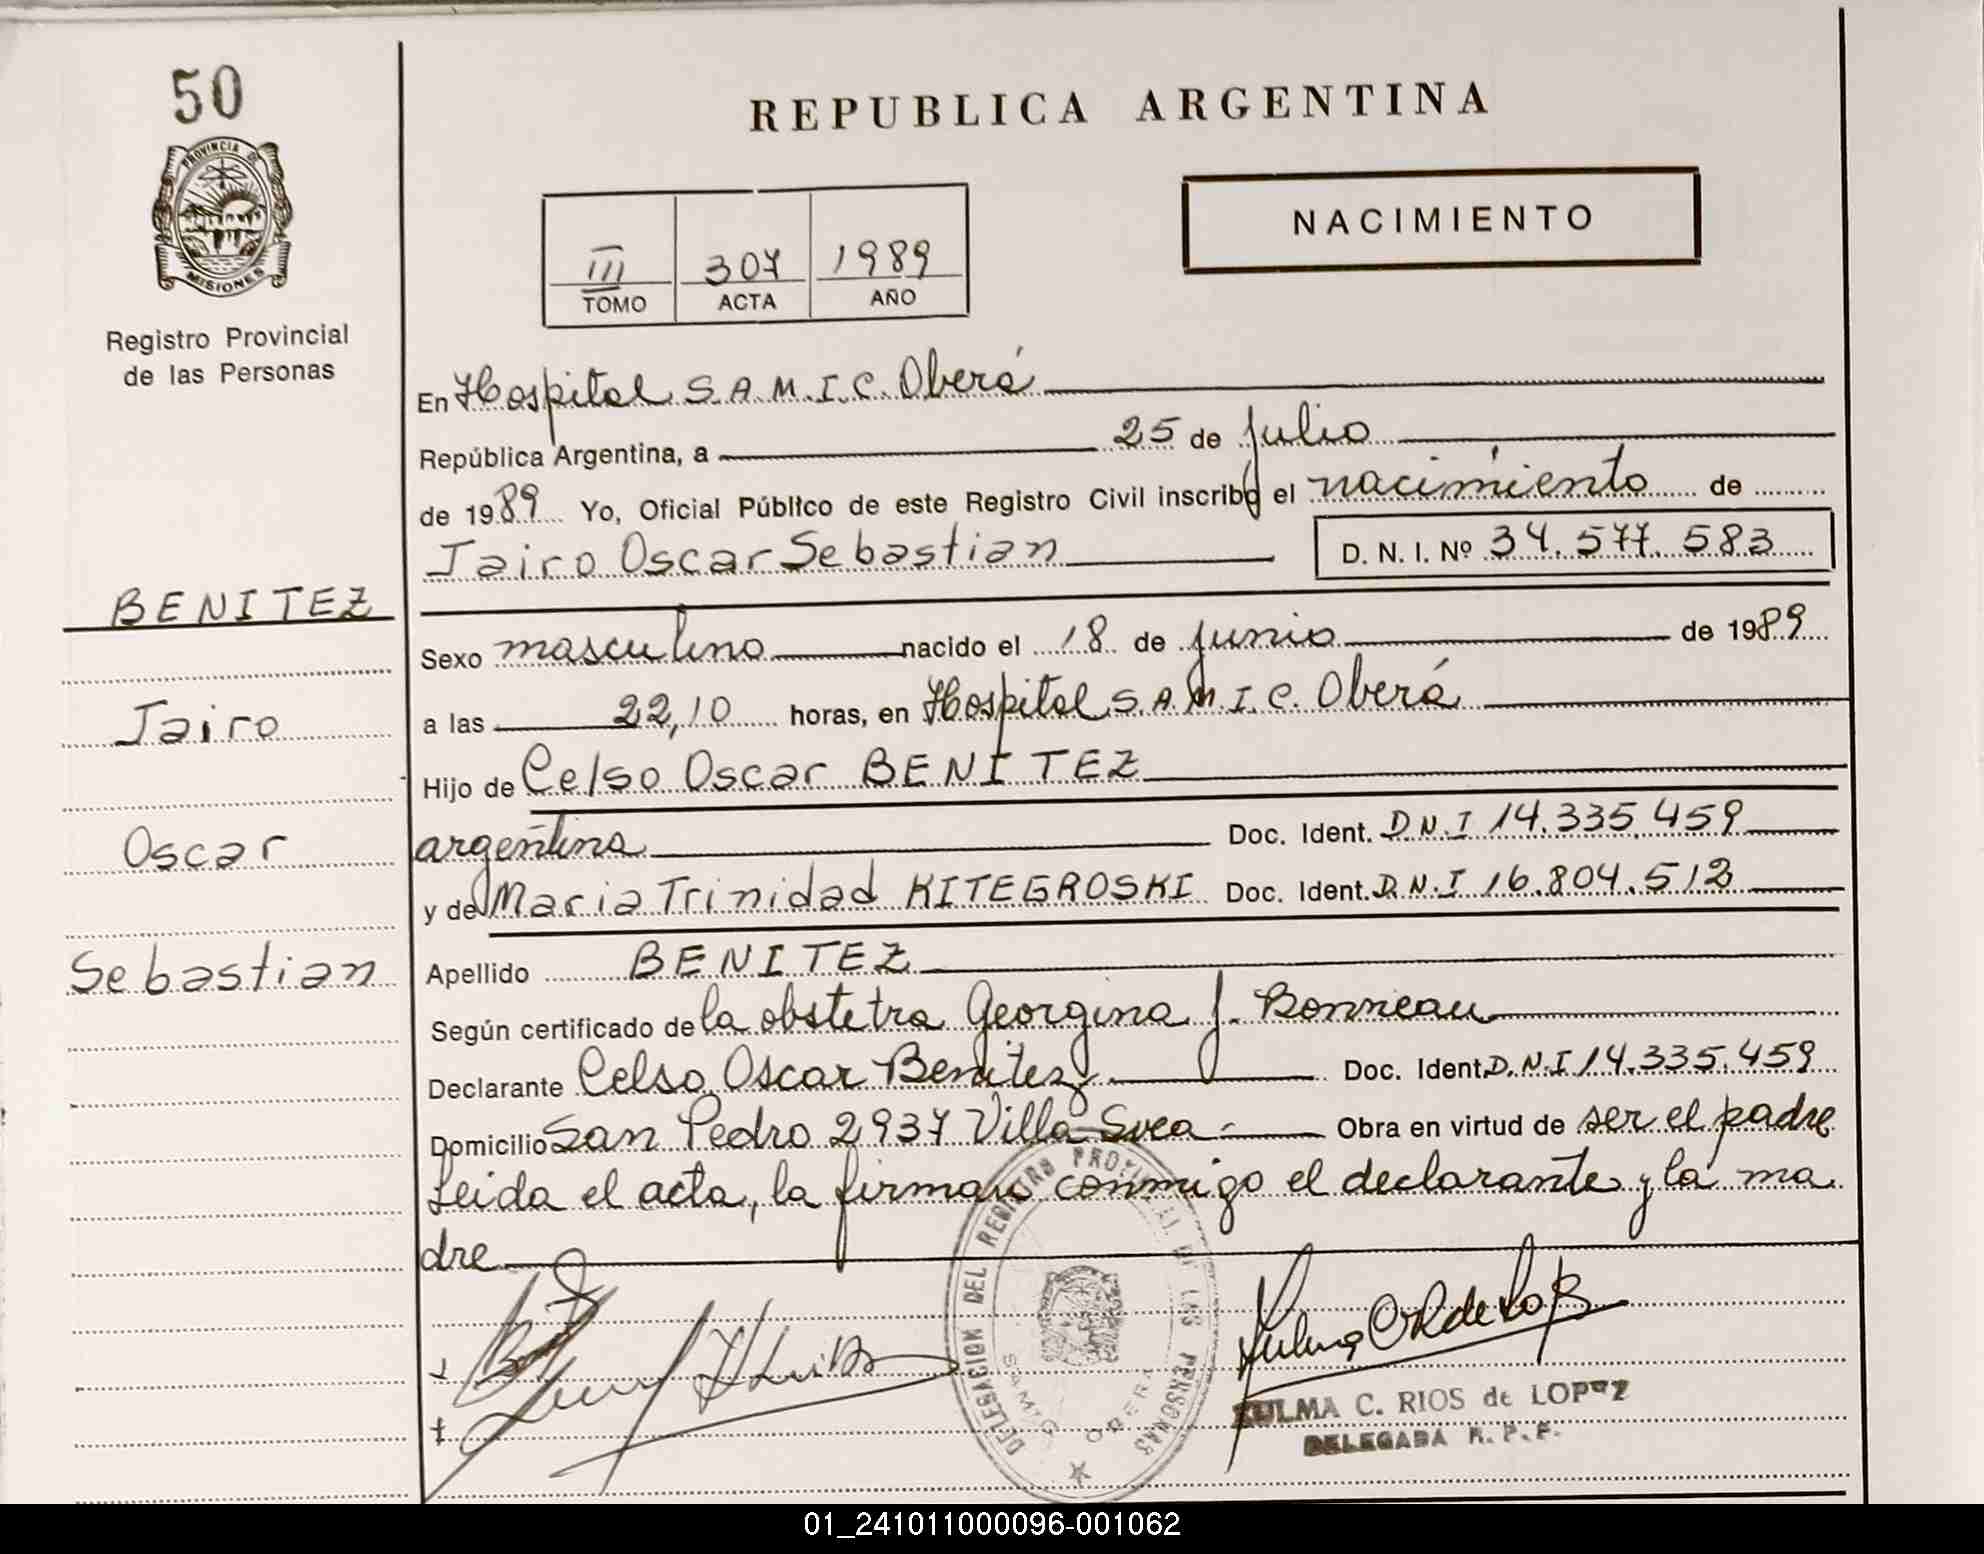 50
PROVINCIA DE
MISIONES
Registro Provincial
de las Personas
BENITEZ
Jairo
Oscar
Sebastian
REPUBLICA ARGENTINA
III 307 1989
TOMO ACTA AÑO
NACIMIENTO
En Hospital S.A.M.I.C. Oberá
República Argentina, a 25 de julio
de 1989 Yo, Oficial Público de este Registro Civil inscribo el nacimiento de
Jairo Oscar Sebastian D. N. I. Nº 34.577.583
Sexo masculino nacido el 18 de junio de 1989
a las 22,10 horas, en Hospital S.A.M.I.C. Oberá
Hijo de Celso Oscar BENITEZ
argentina Doc. Ident. D.N.I 14.335.459
y de Maria Trinidad KITEGROSKI Doc. Ident. D.N.I 16.804.512
Apellido BENITEZ
Según certificado de la obstetra Georgina J. Bonneau
Declarante Celso Oscar Benitez Doc. Ident. D.N.I 14.335.459
Domicilio San Pedro 2937 Villa Svea Obra en virtud de ser el padre
Leida el acta, la firman conmigo el declarante y la ma
dre
DELEGACION DEL REGISTRO PROVINCIAL DE LAS PERSONAS
SAMIC OBERA
ZULMA C. RIOS de LOPEZ
DELEGADA R. P. P.
01_241011000096-001062